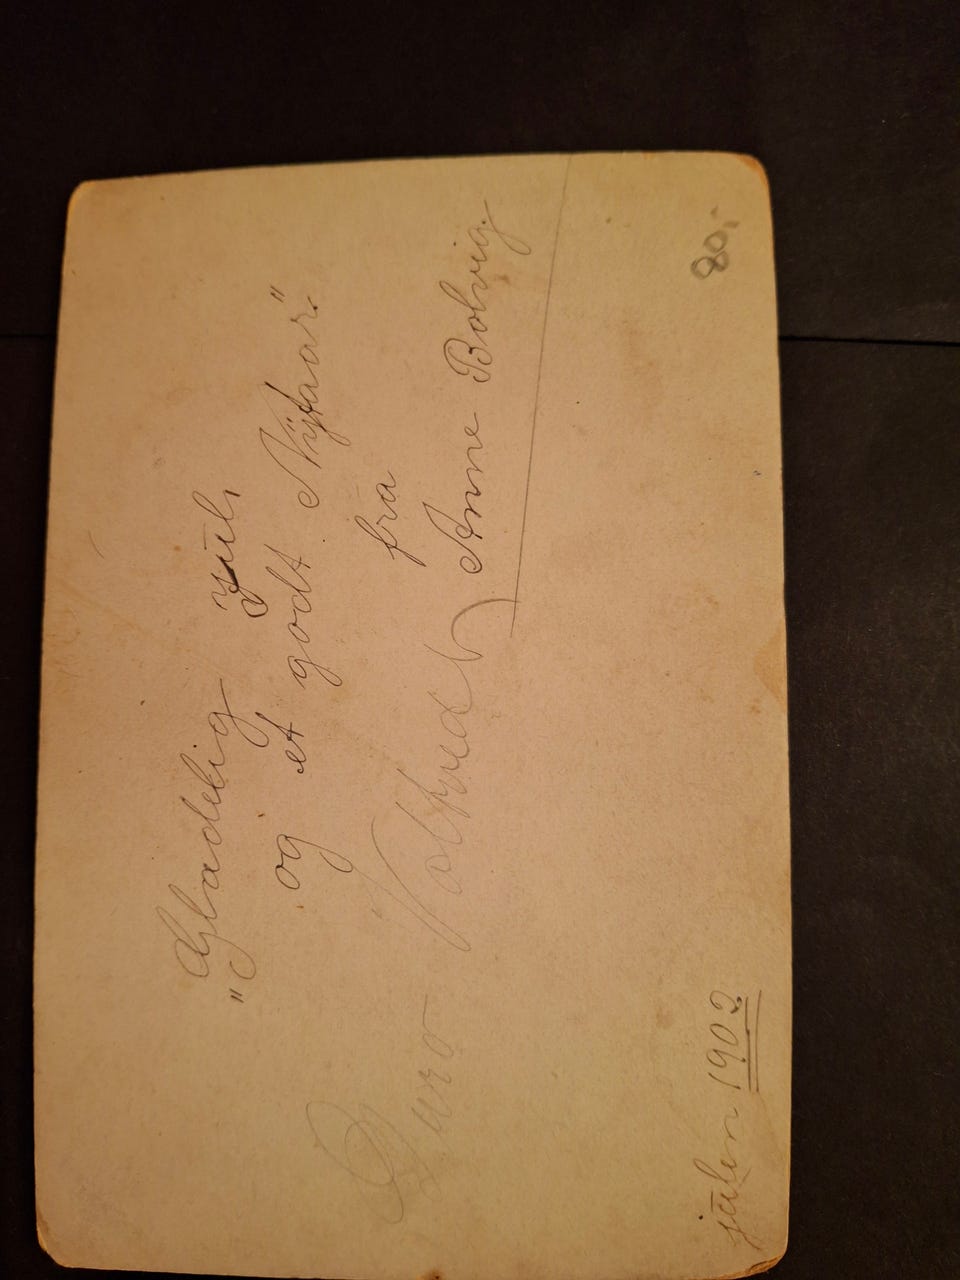 "Glædelig jul,
og et godt Nytaar."
fra
Anne Bolvig.
Guro Voltvedt
julen 1902
80,-